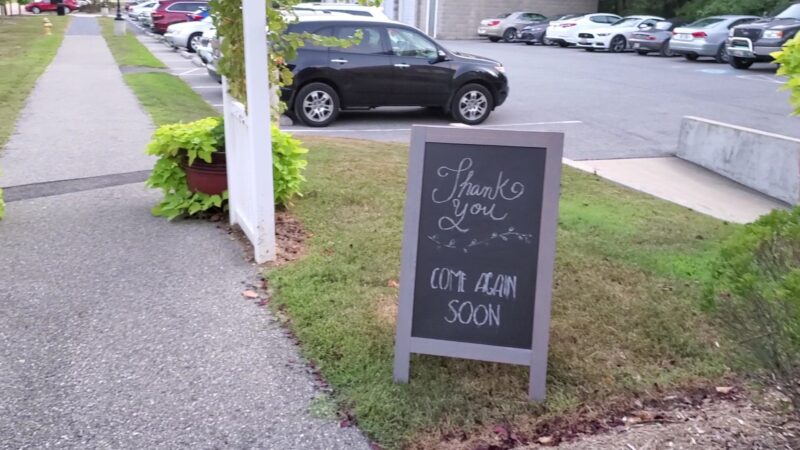 Thank
You
COME AGAIN
SOON